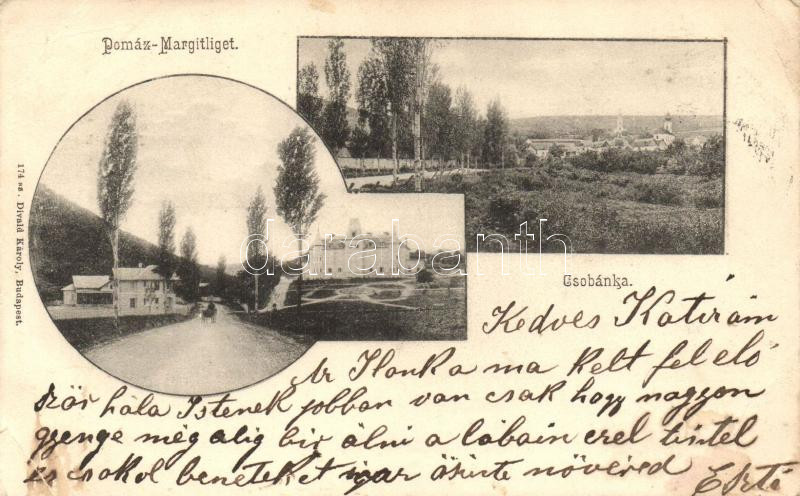 Pomáz-Margitliget.
174 sz. Divald Károly, Budapest.
darabanth.com
Csobánka.
Kedves Katicám
Az Ilonka ma kelt fel elő
ször hála Istenek jobban van csak hogy nagyon
gyenge még alig bir álni a lábain ezel tisztel
és csokol beneteket igaz őszinte növéred
Eszti